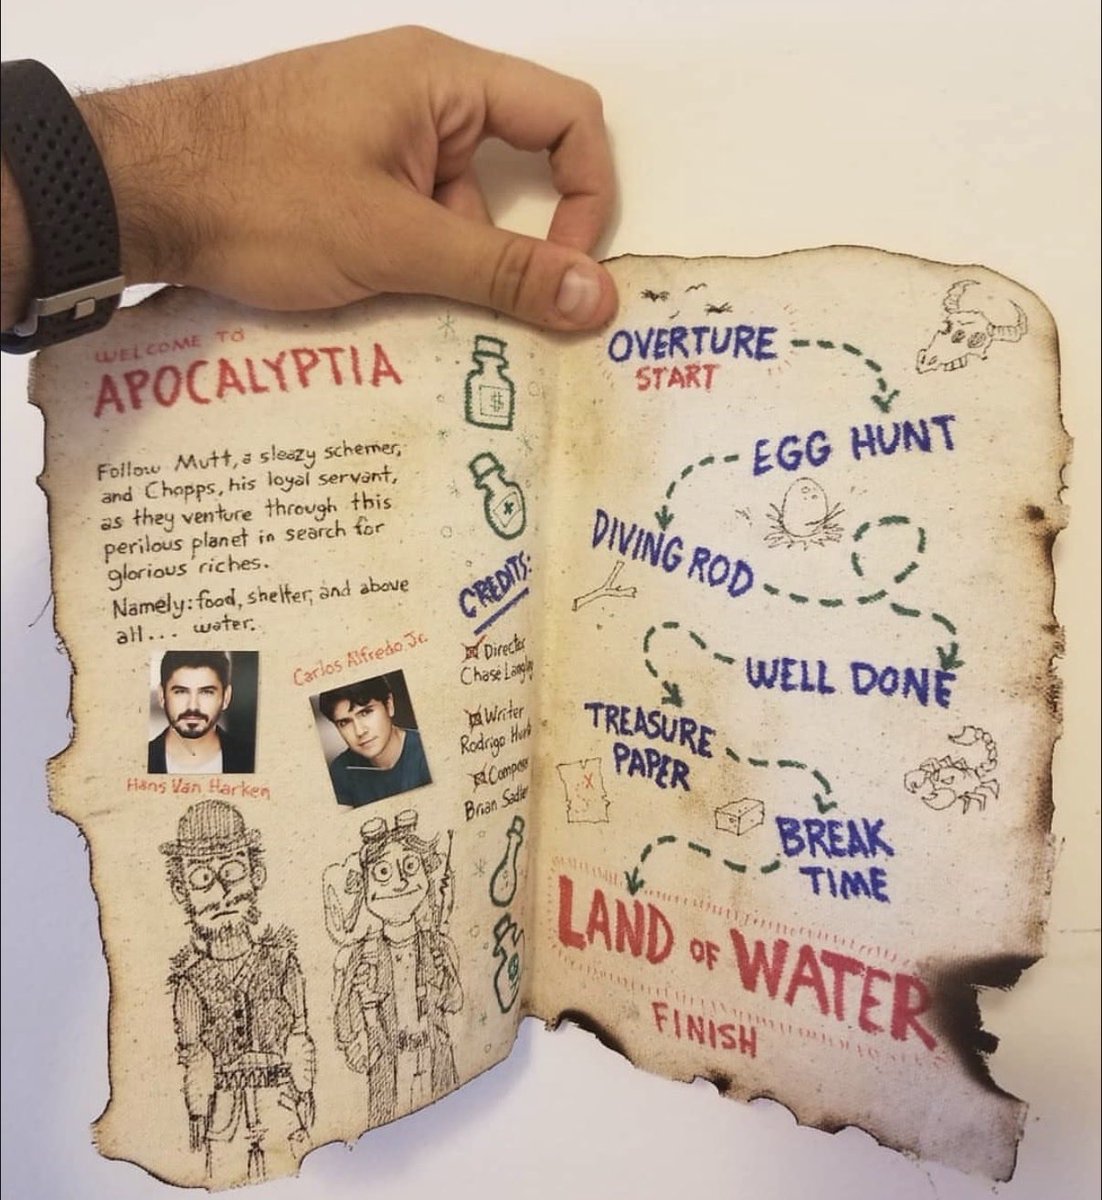 WELCOME TO
APOCALYPTIA
Follow Mutt, a sleazy schemer,
and Chopps, his loyal servant,
as they venture through this
perilous planet in search for
glorious riches.
Namely: food, shelter, and above
all... water.
Carlos Alfredo Jr.
Hans Van Harken
$
CREDITS:
Director
Chase
Writer
Rodrigo
Composer
Brian
OVERTURE
START
EGG HUNT
DIVING ROD
WELL DONE
TREASURE
PAPER
X
BREAK
TIME
LAND OF WATER
FINISH